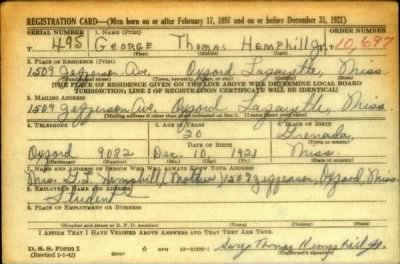 REGISTRATION CARD—(Men born on or after February 17, 1897 and on or before December 31, 1921)
SERIAL NUMBER 1. NAME (Print) ORDER NUMBER
T 495 GEORGE Thomas Hemphill Jr. 10,697
(First) (Middle) (Last)
2. PLACE OF RESIDENCE (Print)
1509 Jefferson Ave. Oxford Lafayette, Miss.
(Number and street) (Town, township, village, or city) (County) (State)
[THE PLACE OF RESIDENCE GIVEN ON THE LINE ABOVE WILL DETERMINE LOCAL BOARD
JURISDICTION; LINE 2 OF REGISTRATION CERTIFICATE WILL BE IDENTICAL]
3. MAILING ADDRESS
1509 Jefferson Ave. Oxford Lafayette, Miss
[Mailing address if other than place indicated on line 2. If same insert word same]
4. TELEPHONE 5. AGE IN YEARS 6. PLACE OF BIRTH
20 Grenada
DATE OF BIRTH (Town or county)
Oxford 9082 Dec. 10 1921 Miss.
(Exchange) (Number) (Mo.) (Day) (Yr.) (State or country)
7. NAME AND ADDRESS OF PERSON WHO WILL ALWAYS KNOW YOUR ADDRESS
Mrs. G. T. Hemphill (Mother) 1509 Jefferson, Oxford, Miss.
8. EMPLOYER'S NAME AND ADDRESS
Student
9. PLACE OF EMPLOYMENT OR BUSINESS
(Number and street or R. F. D. number) (Town) (County) (State)
I AFFIRM THAT I HAVE VERIFIED ABOVE ANSWERS AND THAT THEY ARE TRUE.
D. S. S. Form 1 GPO 16—21630-1 George Thomas Hemphill Jr.
(Revised 1-1-42) (Registrant's signature)